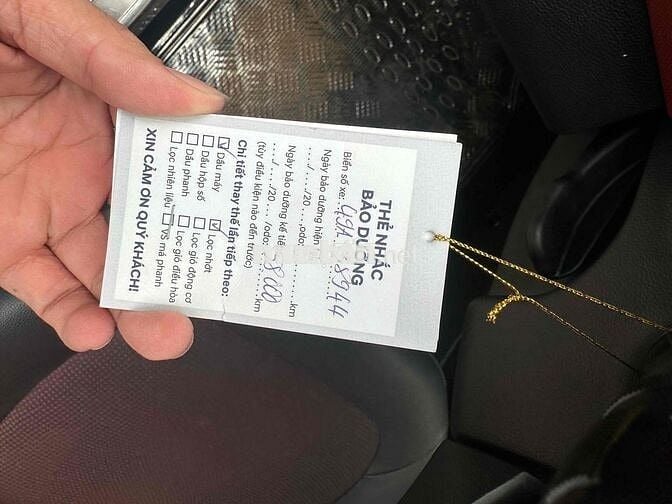 THẺ NHẮC
BẢO DƯỠNG
Biển số xe:
Ngày bảo dưỡng hiện
..../..../20 .... ,odo: ............km
Ngày bảo dưỡng kế tiế
..../..../20 .... /odo: 8000 km
(tùy điều kiện nào đến trước)
Chi tiết thay thế lần tiếp theo:
☑ Dầu máy ☑ Lọc nhớt
☐ Dầu hộp số ☐ Lọc gió động cơ
☐ Dầu phanh ☐ Lọc gió điều hòa
☐ Lọc nhiên liệu ☐ VS má phanh
XIN CẢM ƠN QUÝ KHÁCH!